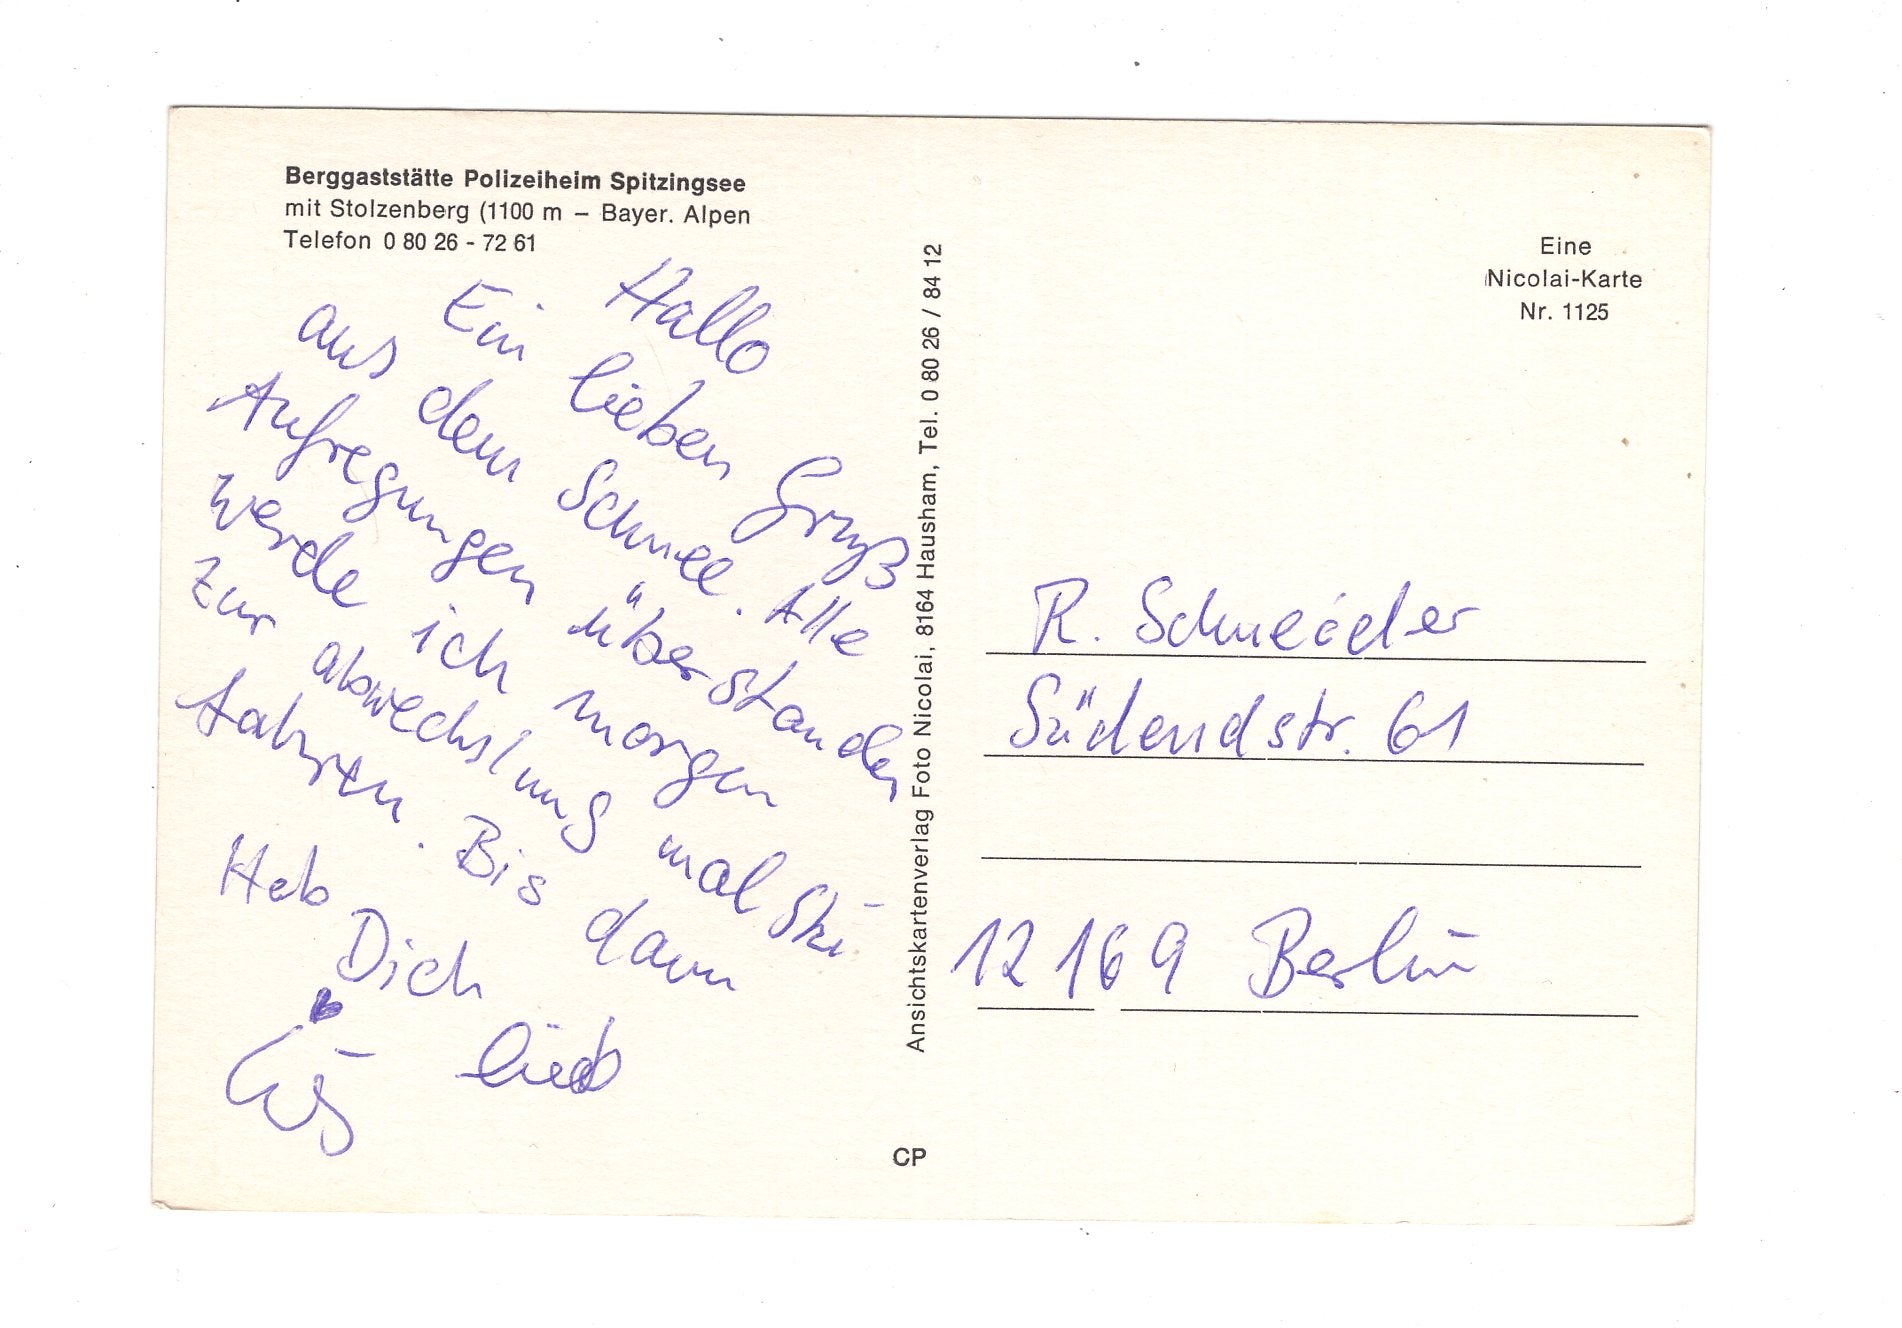 Berggaststätte Polizeiheim Spitzingsee
mit Stolzenberg (1100 m – Bayer. Alpen
Telefon 0 80 26 - 72 61
Hallo
Ein lieben Gruß
aus dem Schnee. Alle
Aufregungen überstanden
werde ich morgen
zur abwechslung mal Ski
fahren. Bis dann
Hab
Dich
lieb
Ansichtskartenverlag Foto Nicolai, 8164 Hausham, Tel. 0 80 26 / 84 12
CP
Eine
Nicolai-Karte
Nr. 1125
R. Schneider
Südendstr. 61
12169 Berlin